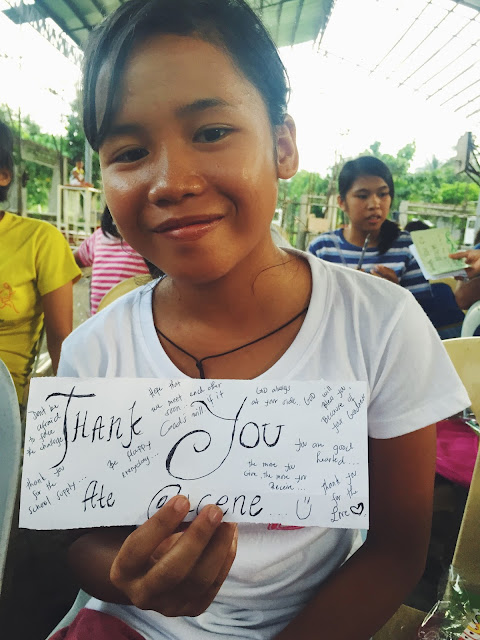 Don't be
afraid
to face
the challenge
Hope that
we meet each other
soon.. if it
God's will
GOD always
at your side..
GOD will
bless you
Because of
your kindness
THANK YOU
thank you
for the
School supply...
Be Happy
everyday...
the more you
Give, the more you
Receive...
You are good
hearted...
thank you
for the
Love
Ate @cene....